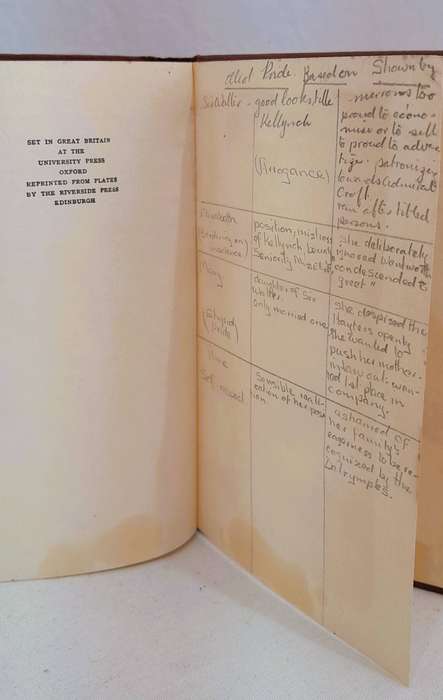 SET IN GREAT BRITAIN
AT THE
UNIVERSITY PRESS
OXFORD
REPRINTED FROM PLATES
BY THE RIVERSIDE PRESS
EDINBURGH
Pride Based on Shown by
Sir Walter - good looks title
Kellynch
(Arrogance)
too
proud to econo-
mise or to sell
to proud to adver
tise. patronizes
towards Admiral
Croft.
ran after titled
persons.
Elizabeth
(bordering on
insolence)
position, mistress
of Kellynch
Seniority
she deliberately
ignored Wentworth
condescended to
greet "
Mary
(Stupid)
pride
daughter of Sir
Walter.
only married one
she despised the
Hayters openly
she wanted to
push her mother-
inlaw out. wan-
ted 1st place in
company.
Anne
Self respect
Sensible reali-
sation of her posi
tion.
ashamed of
her family's
eagerness to be re-
cognized by the
Dalrymples.